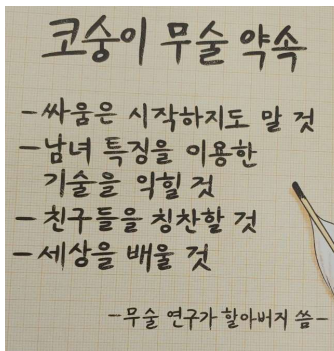 코숭이 무술 약속
-싸움은 시작하지도 말 것
-남녀 특징을 이용한
기술을 익힐 것
-친구들을 칭찬할 것
-세상을 배울 것
-무술 연구가 할아버지 씀-